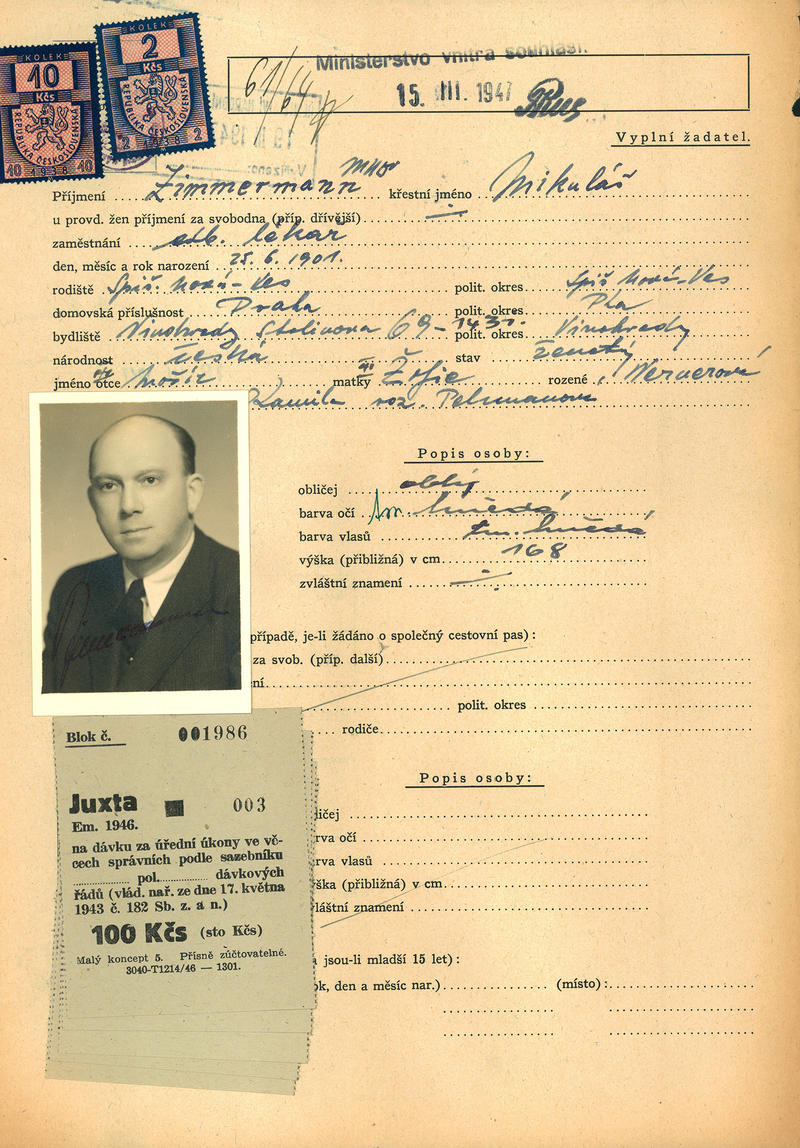 KOLEK
10
Kčs
REPUBLIKA ČESKOSLOVENSKÁ
10 1938 10
KOLEK
2
Kčs
REPUBLIKA ČESKOSLOVENSKÁ
2 1938 2
Ministerstvo vnitra souhlasí.
61/
15. III. 1947
Vyplní žadatel.
Příjmení Zimmermann křestní jméno Mikuláš
u provd. žen příjmení za svobodna (příp. dřívější)
zaměstnání odb. lékař
den, měsíc a rok narození 25. 6. 1901.
rodiště Spiš. Nová-Ves polit. okres Spiš Nová-Ves
domovská příslušnost Praha polit. okres Pha
bydliště Vinohrady Stalinova 69-1431. polit. okres Vinohrady
národnost česká stav ženatý
jméno otce Mořic matky Žofie rozené Wernerová
Kamila roz. Pelzmanová
Popis osoby:
obličej oblý
barva očí tm. hnědá
barva vlasů tm. hnědá
výška (přibližná) v cm 168
zvláštní znamení
případě, je-li žádáno o společný cestovní pas):
za svob. (příp. další)
ní
polit. okres
rodiče
Popis osoby:
ličej
rva očí
rva vlasů
ška (přibližná) v cm
láštní znamení
jsou-li mladší 15 let):
ok, den a měsíc nar.) (místo):
Blok č. 001986
Juxta 003
Em. 1946.
na dávku za úřední úkony ve vě-
cech správních podle sazebníku
pol. dávkových
řádů (vlád. nař. ze dne 17. května
1943 č. 182 Sb. z. a n.)
100 Kčs (sto Kčs)
Malý koncept 5. Přísně zúčtovatelné.
3040-T1214/46 — 1301.